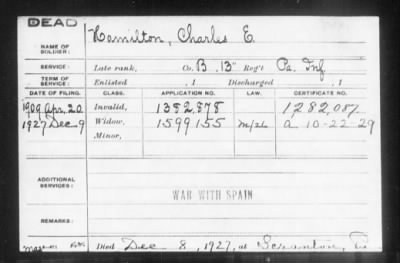 DEAD
NAME OF SOLDIER: Hamilton, Charles E.
SERVICE: Late rank, Co. B, 13" Reg't Pa. Inf.
TERM OF SERVICE: Enlisted , 1 Discharged , 1
DATE OF FILING. CLASS. APPLICATION NO. LAW. CERTIFICATE NO.
1909 Apr. 20 Invalid, 1382,878 1282,087
1927 Dec-9 Widow, 1599155 a 10-22-29
Minor,
ADDITIONAL SERVICES:
WAR WITH SPAIN
REMARKS:
Died Dec 8, 1927, at Scranton, Pa